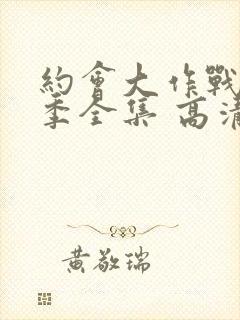 約會大作戰
季全集 高清
黃敬瑞